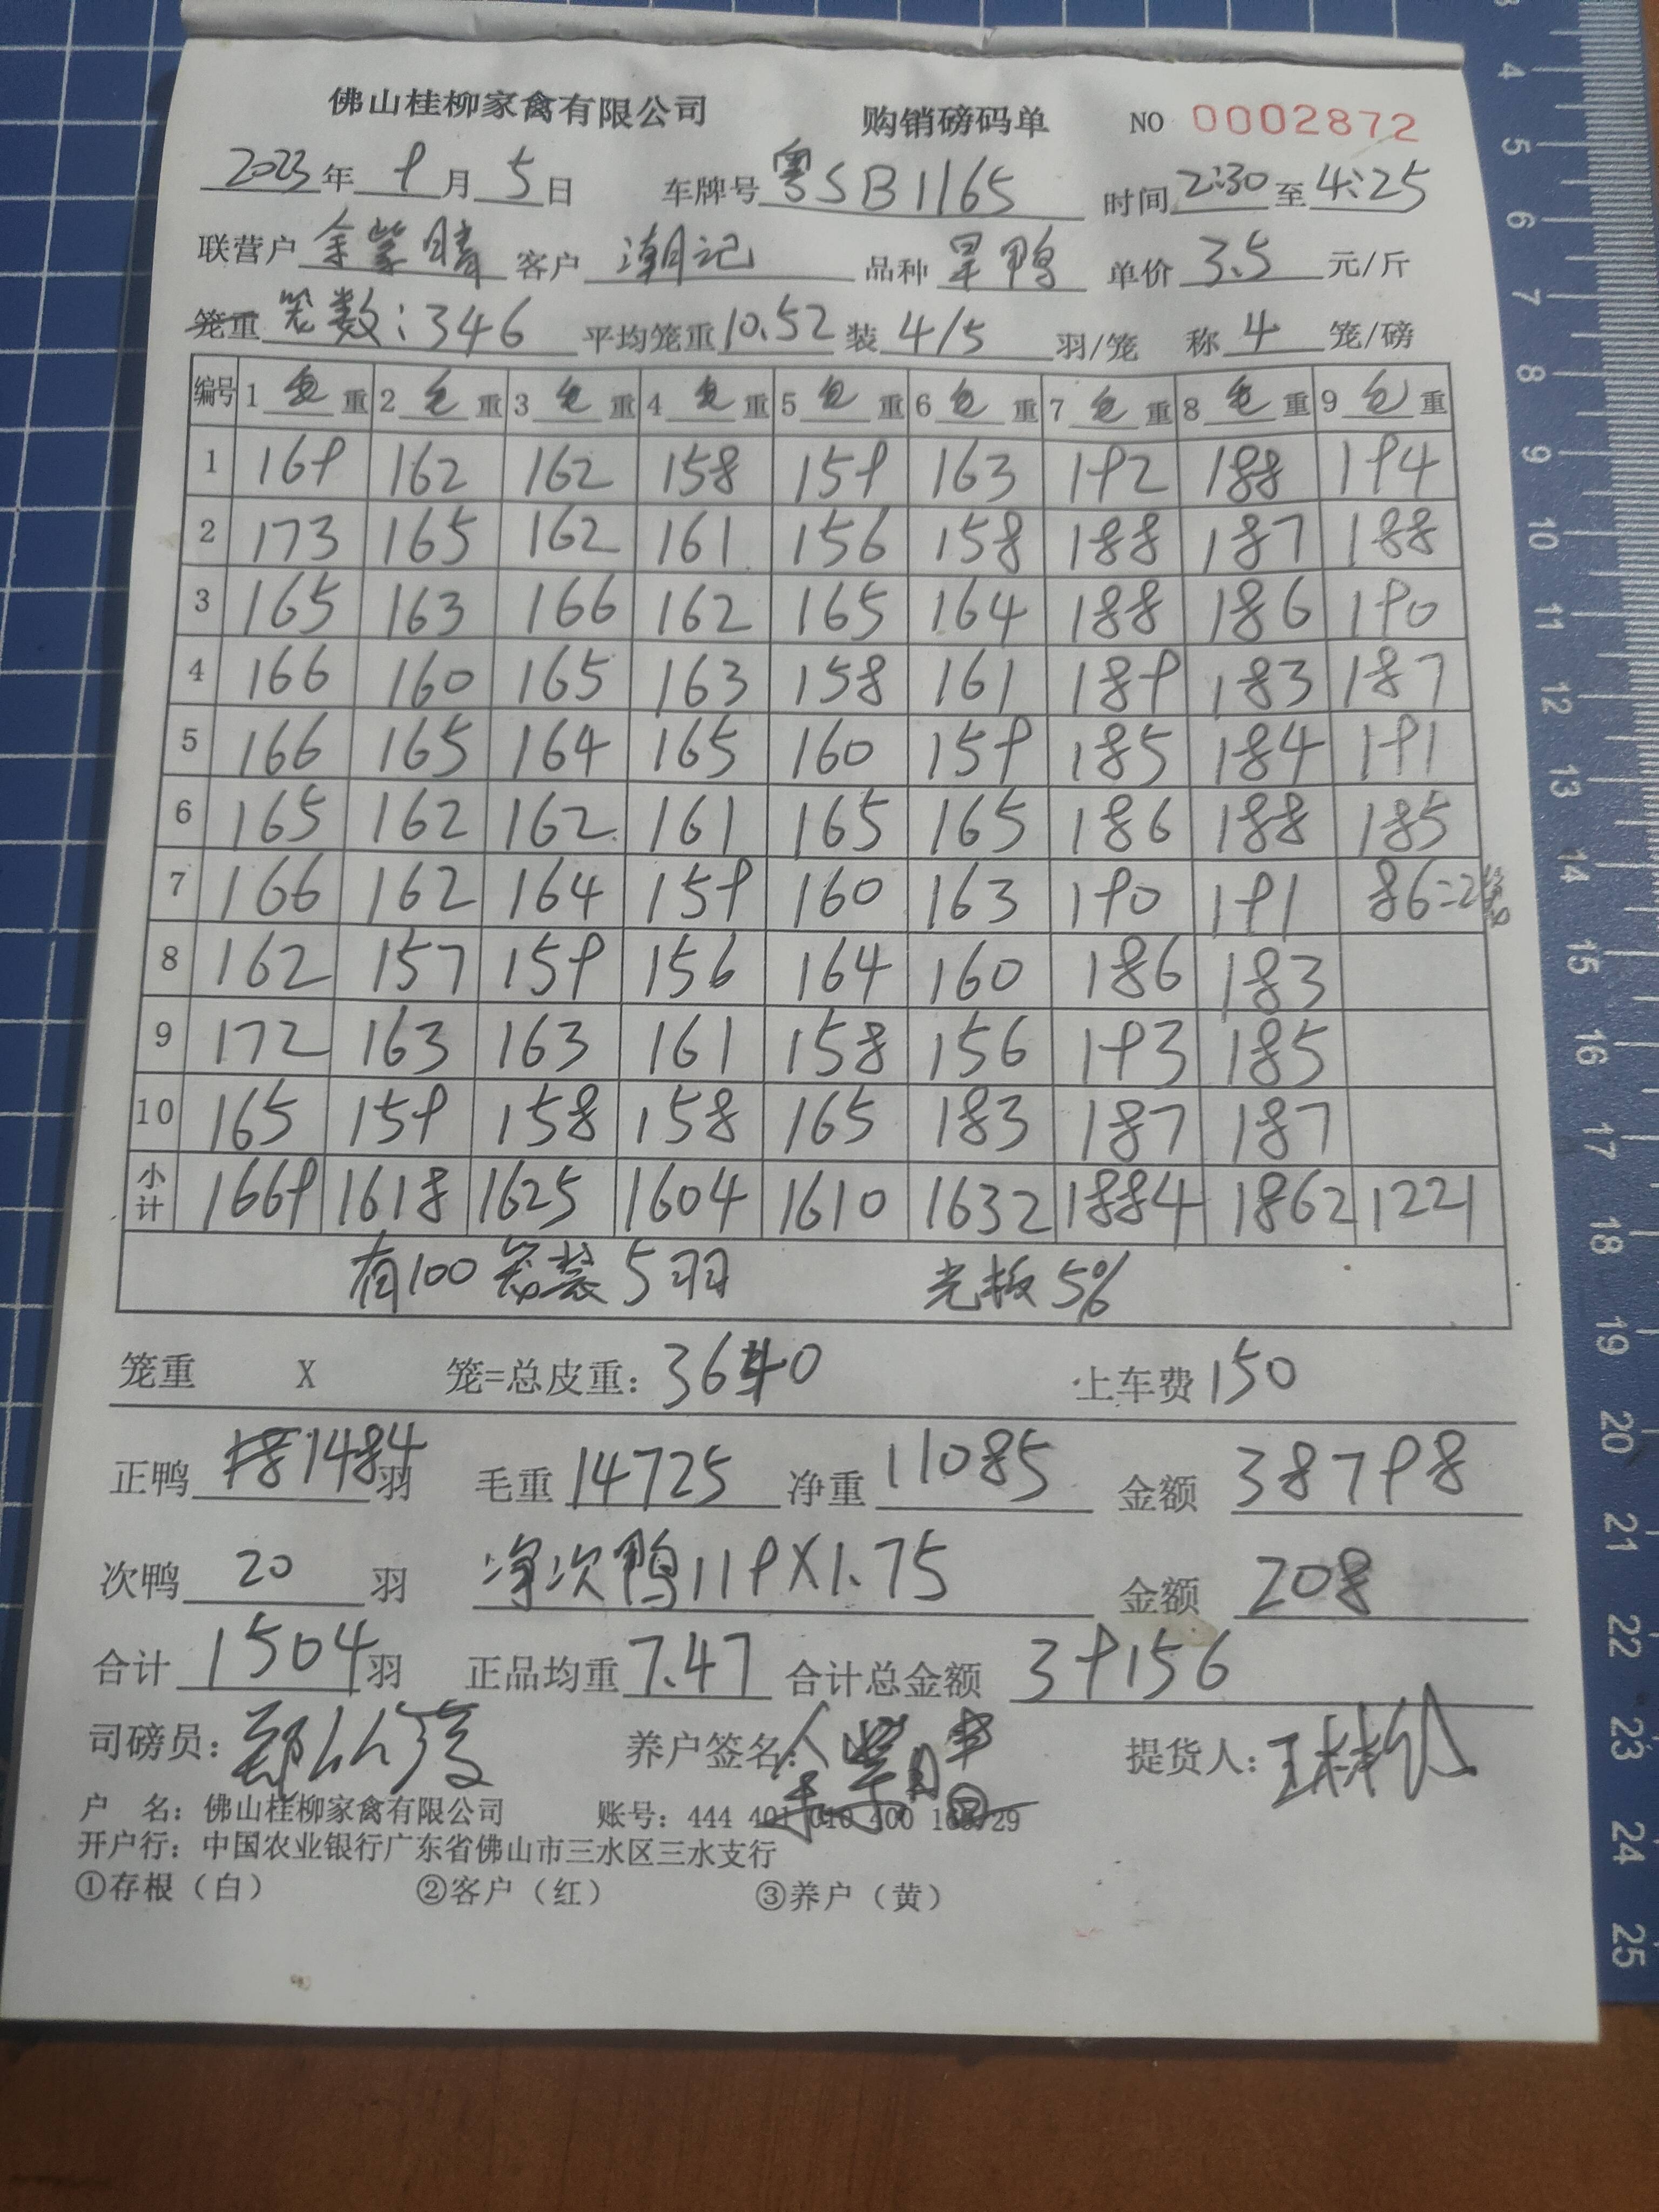 佛山桂柳家禽有限公司 购销磅码单 NO 0002872
2023年 9月 5日 车牌号 粤SB1165 时间 2:30 至 4:25
联营户 余紫晴 客户 潮记 品种 旱鸭 单价 3.5 元/斤
笼重 笼数:346 平均笼重 10.52 装 4/5 羽/笼 称 4 笼/磅
编号 1 毛 重 2 毛 重 3 毛 重 4 毛 重 5 毛 重 6 毛 重 7 毛 重 8 毛 重 9 毛 重
1 169 162 162 158 159 163 192 188 194
2 173 165 162 161 156 158 188 187 188
3 165 163 166 162 165 164 188 186 190
4 166 160 165 163 158 161 189 183 187
5 166 165 164 165 160 159 185 184 191
6 165 162 162 161 165 165 186 188 185
7 166 162 164 159 160 163 190 191 86=2笼
8 162 157 159 156 164 160 186 183
9 172 163 163 161 158 156 193 185
10 165 159 158 158 165 183 187 187
小计 1669 1618 1625 1604 1610 1632 1884 1862 1221
有100笼装5羽 光板5%
笼重 X 笼=总皮重: 3640 上车费 150
正鸭 1484 羽 毛重 14725 净重 11085 金额 38798
次鸭 20 羽 净次鸭119X1.75 金额 208
合计 1504 羽 正品均重 7.47 合计总金额 39156
司磅员: 养户签名: 提货人:
户 名: 佛山桂柳家禽有限公司 账号: 444 401 010 400 29
开户行: 中国农业银行广东省佛山市三水区三水支行
①存根（白） ②客户（红） ③养户（黄）
3
4
5
6
7
8
9
10
11
12
13
14
15
16
17
18
19
20
21
22
23
24
25